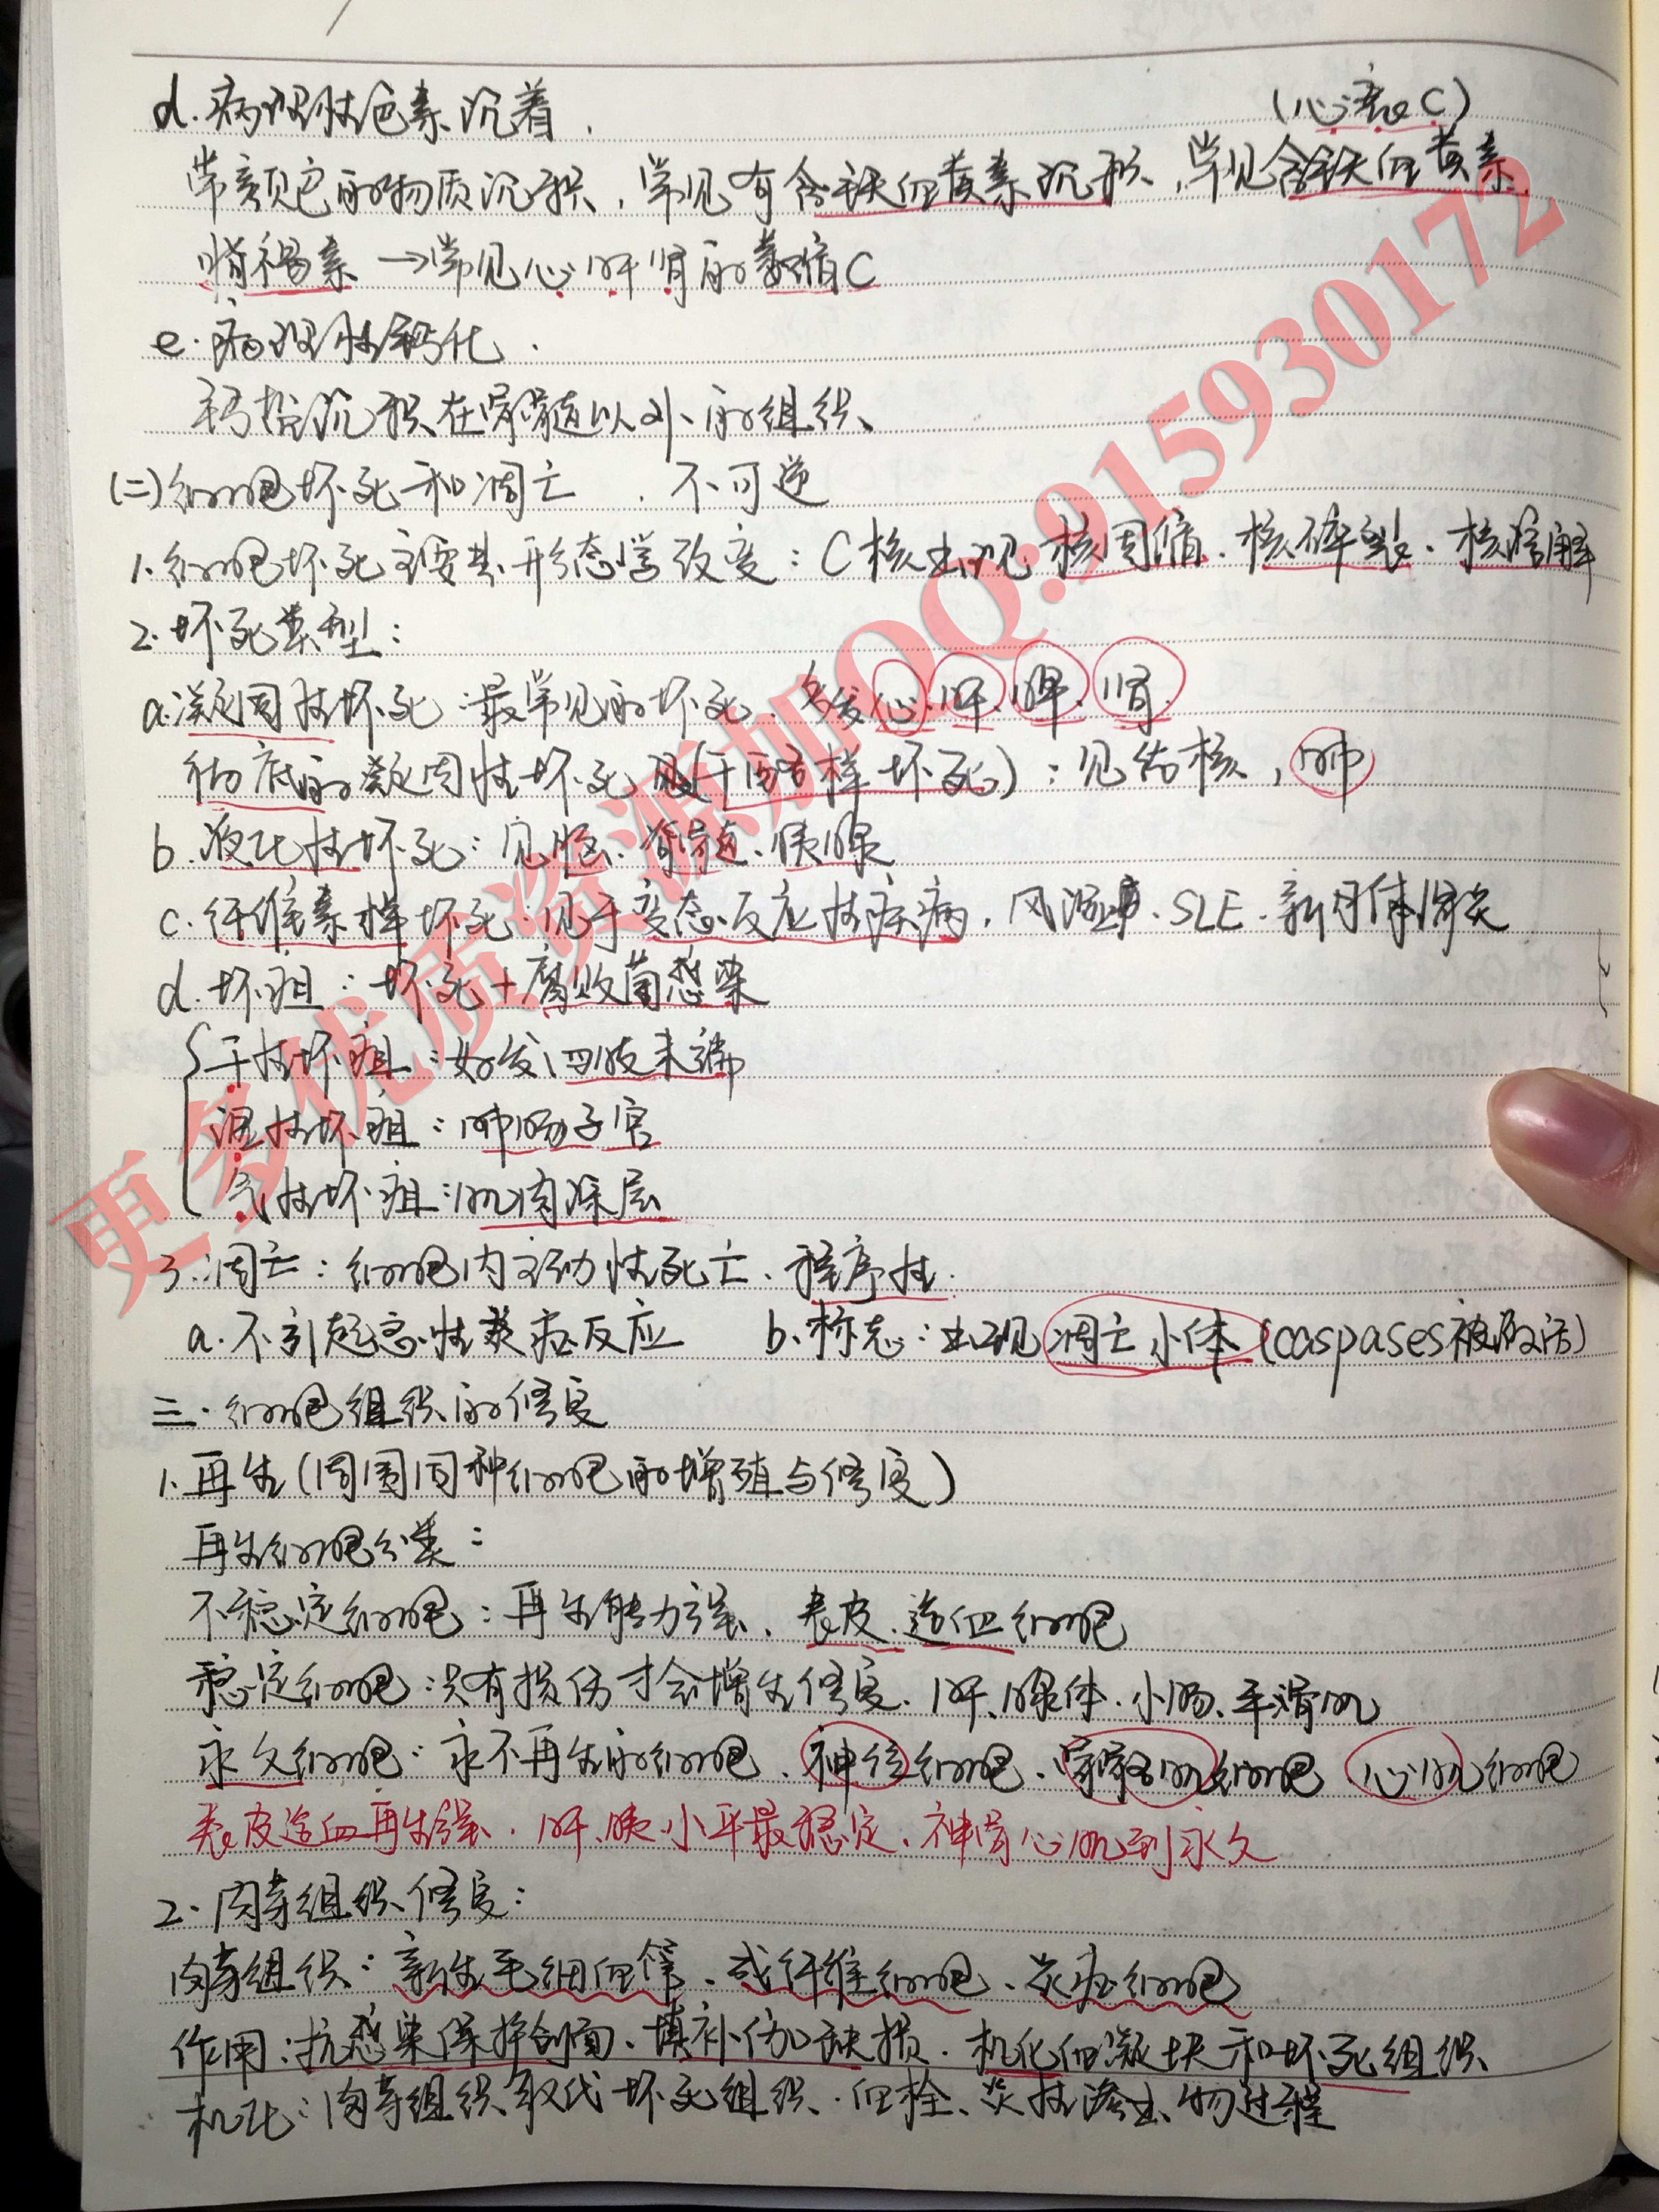 d.病理性色素沉着.
(心衰C)
带颜色的物质沉积,常见有含铁血黄素沉积,常见含铁血黄素,
脂褐素→常见心肝肾的萎缩C
e.病理性钙化.
钙盐沉积在骨髓以外的组织、
(二)细胞坏死和凋亡.不可逆
1.细胞坏死主要其形态学改变:C核出现核固缩.核碎裂.核溶解
2.坏死类型:
a.凝固性坏死:最常见的坏死.多发心.肝.脾.肾.
彻底的凝固性坏死(干酪样坏死):见结核,肺
b.液化性坏死:见脑、脊髓、胰腺
c.纤维素样坏死:见于变态反应性疾病,风湿.SLE.新月体肾炎
d.坏疽:坏死+腐败菌感染
干性坏疽:好发四肢末端
湿性坏疽:肺肠子宫
气性坏疽:肌肉深层
3.凋亡:细胞内主动性死亡、程序性.
a.不引起急性炎症反应 b.标志:出现凋亡小体(caspases被激活)
三.细胞组织的修复
1.再生(周围同种细胞的增殖与修复)
再生细胞分类:
不稳定细胞:再生能力强、表皮.造血细胞
稳定细胞:只有损伤才会增生修复.肝、腺体.小肠、平滑肌
永久细胞:永不再生的细胞.神经细胞、骨骼肌细胞 心肌细胞
表皮造血再生强.肝、胰小平最稳定、神骨心肌到永久
2.肉芽组织修复:
肉芽组织:新生毛细血管、成纤维细胞、炎症细胞
作用:抗感染保护创面、填补伤口缺损.机化血凝块和坏死组织
机化:肉芽组织取代坏死组织.血栓、炎性渗出物过程
更多优质资源加QQ:915930172